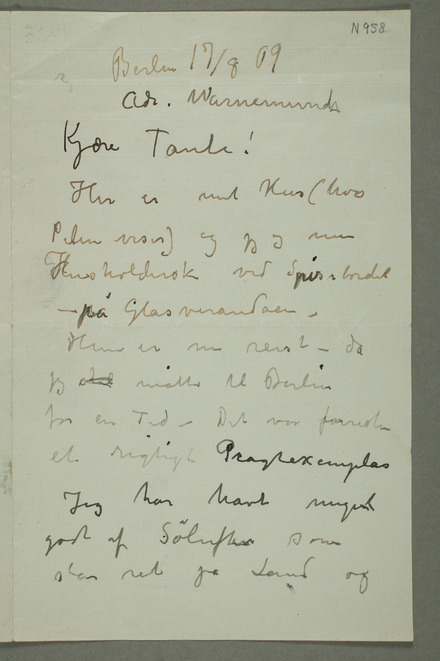 N 958
Berlin 17/8 09
Adr. Warnemünde
Kjære Tante!
Her er mit Hus (hvor
Pilen viser) og jeg og min
Husholderske ved Spisebordet
– på Glasverandaen –
Hun er nu reist – da
jeg måtte til Berlin
for en Tid – Det var forresten
et rigtigt Pragtexemplar
Jeg har havt meget
godt af Söluften som
står ret på Land og